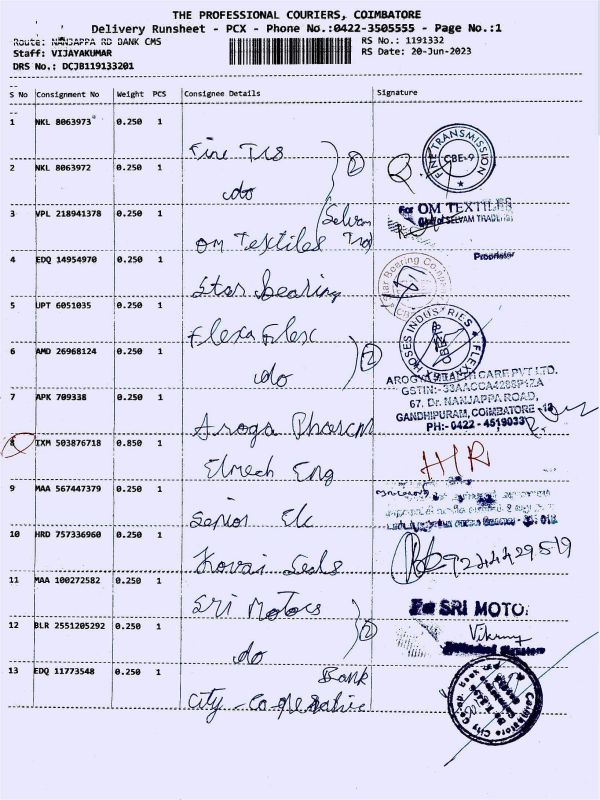 THE PROFESSIONAL COURIERS, COIMBATORE
Delivery Runsheet - PCX - Phone No.:0422-3505555 - Page No.:1
Route: NANJAPPA RD BANK CMS
RS No.: 1191332
Staff: VIJAYAKUMAR
RS Date: 20-Jun-2023
DRS No.: DCJB119133201
S No Consignment No Weight PCS Consignee Details Signature
1 NKL 8063973 0.250 1 Fine Trs
FINE TRANSMISSION CBE-9
2 NKL 8063972 0.250 1 do 2
3 VPL 218941378 0.250 1 Om Textiles (Selvam Trad
For OM TEXTILES
SELVAM TRADERS
Proprietor
4 EDQ 14954970 0.250 1 Star bearing
Star Bearing
5 UPT 6051035 0.250 1 Flexa Flex
HOSES INDUSTRIES
6 AMD 26968124 0.250 1 do 2
HEALTH CARE PVT LTD.
67, Dr. NANJAPPA ROAD,
GANDHIPURAM, COIMBATORE - 18
PH:- 0422 - 4519033
7 APK 709338 0.250 1
8 TXM 503876718 0.850 1 Elmech Eng
9 MAA 567447379 0.250 1 Senior Elc
10 HRD 757336960 0.250 1 Kovai Seals
11 MAA 100272582 0.250 1 Sri Motors
For SRI MOTO
12 BLR 2551205292 0.250 1 do 2
13 EDQ 11773548 0.250 1 City - Co-operative Bank
Coimbatore City Co-op.